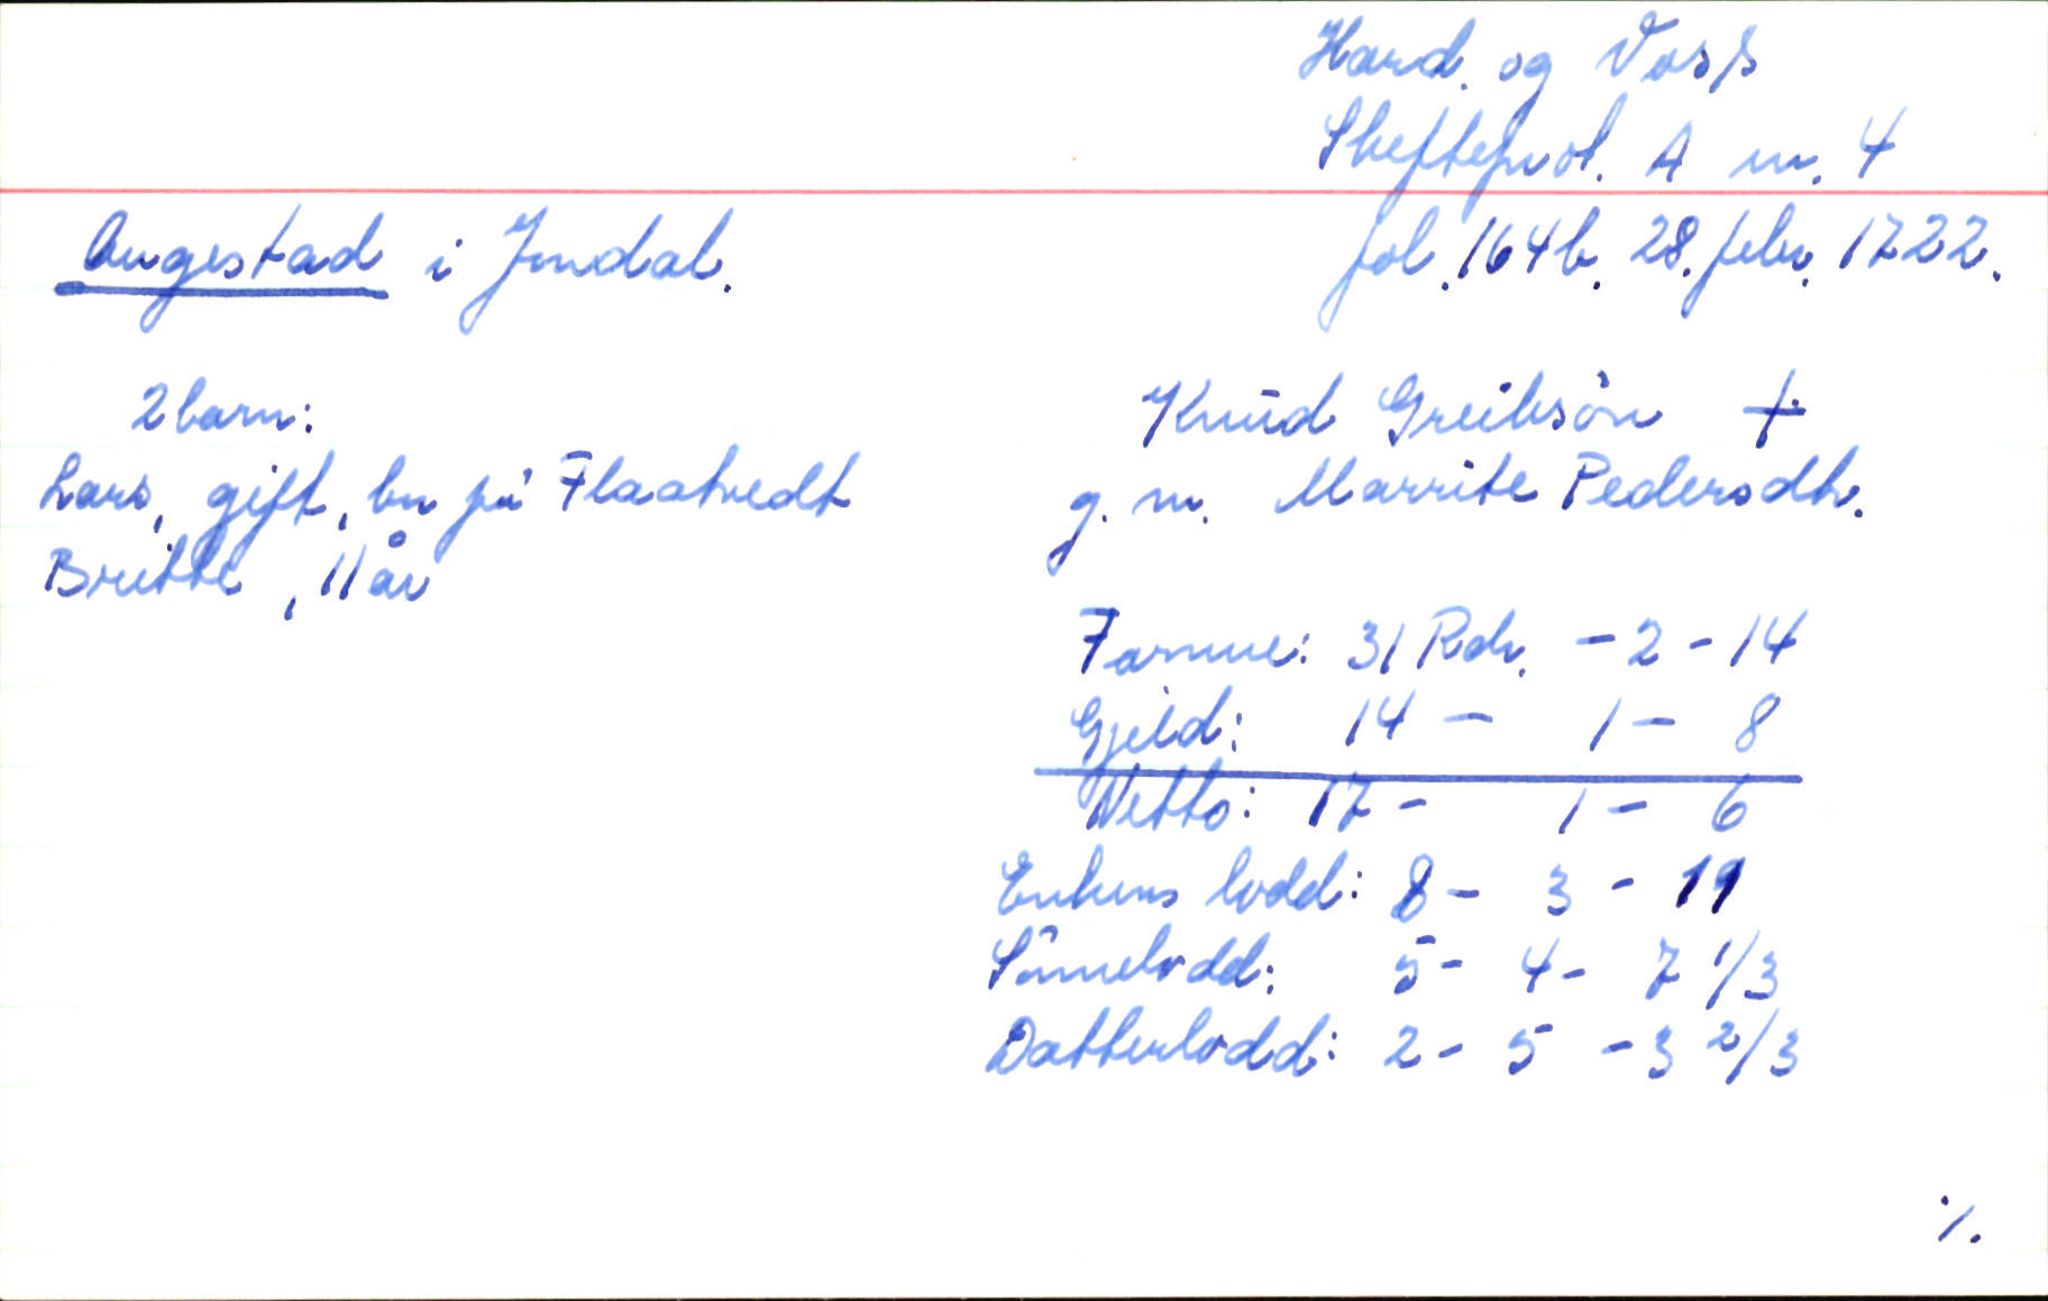 Hard. og Voss
Skifteprot. A nr. 4
fol. 164b. 28. febr. 1722.
Augestad i Jondal.
2 barn:
Lars, gift, bu på Flaatvedt
Britte, 11 år
Knud Greibsön +
g. m. Marrite Pedersdtr.
Formue: 31 Rdr. - 2 - 14
Gjeld: 14 - 1 - 8
Netto: 17 - 1 - 6
Enkens lodd: 8 - 3 - 19
Sönnelodd: 5 - 4 - 7 1/3
Datterlodd: 2 - 5 - 3 2/3
./.